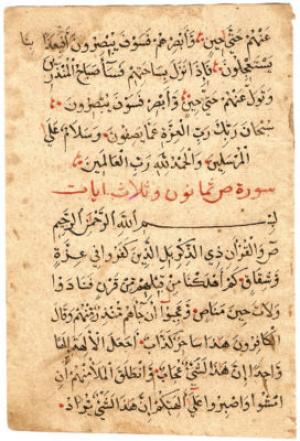 عَنْهُمْ حَتَّىٰ حِينٍ وَأَبْصِرْهُمْ فَسَوْفَ يُبْصِرُونَ أَفَبِعَذَابِنَا
يَسْتَعْجِلُونَ فَإِذَا نَزَلَ بِسَاحَتِهِمْ فَسَآءَ صَبَاحُ الْمُنْذَرِينَ
وَتَوَلَّ عَنْهُمْ حَتَّىٰ حِينٍ وَأَبْصِرْ فَسَوْفَ يُبْصِرُونَ
سُبْحَانَ رَبِّكَ رَبِّ الْعِزَّةِ عَمَّا يَصِفُونَ وَسَلَامٌ عَلَى
الْمُرْسَلِينَ وَالْحَمْدُ لِلّٰهِ رَبِّ الْعَالَمِينَ
سورة ص ثمانون وثلاث ايات
بِسْمِ اللّٰهِ الرَّحْمٰنِ الرَّحِيمِ
صٓ وَالْقُرْآنِ ذِي الذِّكْرِ بَلِ الَّذِينَ كَفَرُوا فِي عِزَّةٍ
وَشِقَاقٍ كَمْ أَهْلَكْنَا مِنْ قَبْلِهِمْ مِنْ قَرْنٍ فَنَادَوْا
وَلَاتَ حِينَ مَنَاصٍ وَعَجِبُوا أَنْ جَاءَهُمْ مُنْذِرٌ مِنْهُمْ وَقَالَ
الْكَافِرُونَ هٰذَا سَاحِرٌ كَذَّابٌ أَجَعَلَ الْآلِهَةَ إِلٰهًا
وَاحِدًا إِنَّ هٰذَا لَشَيْءٌ عُجَابٌ وَانْطَلَقَ الْمَلَأُ مِنْهُمْ أَنِ
امْشُوا وَاصْبِرُوا عَلَىٰ آلِهَتِكُمْ إِنَّ هٰذَا لَشَيْءٌ يُرَادُ